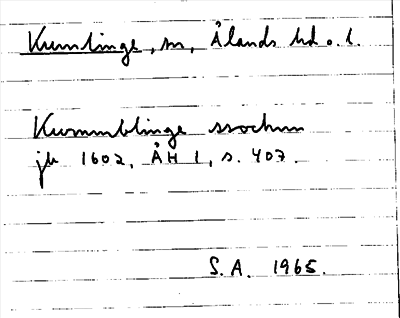 Kumlinge, sn, Ålands hd o. l.
Kummblinge sochnn
jb 1602, ÅH 1, s. 407.
S.A. 1965.